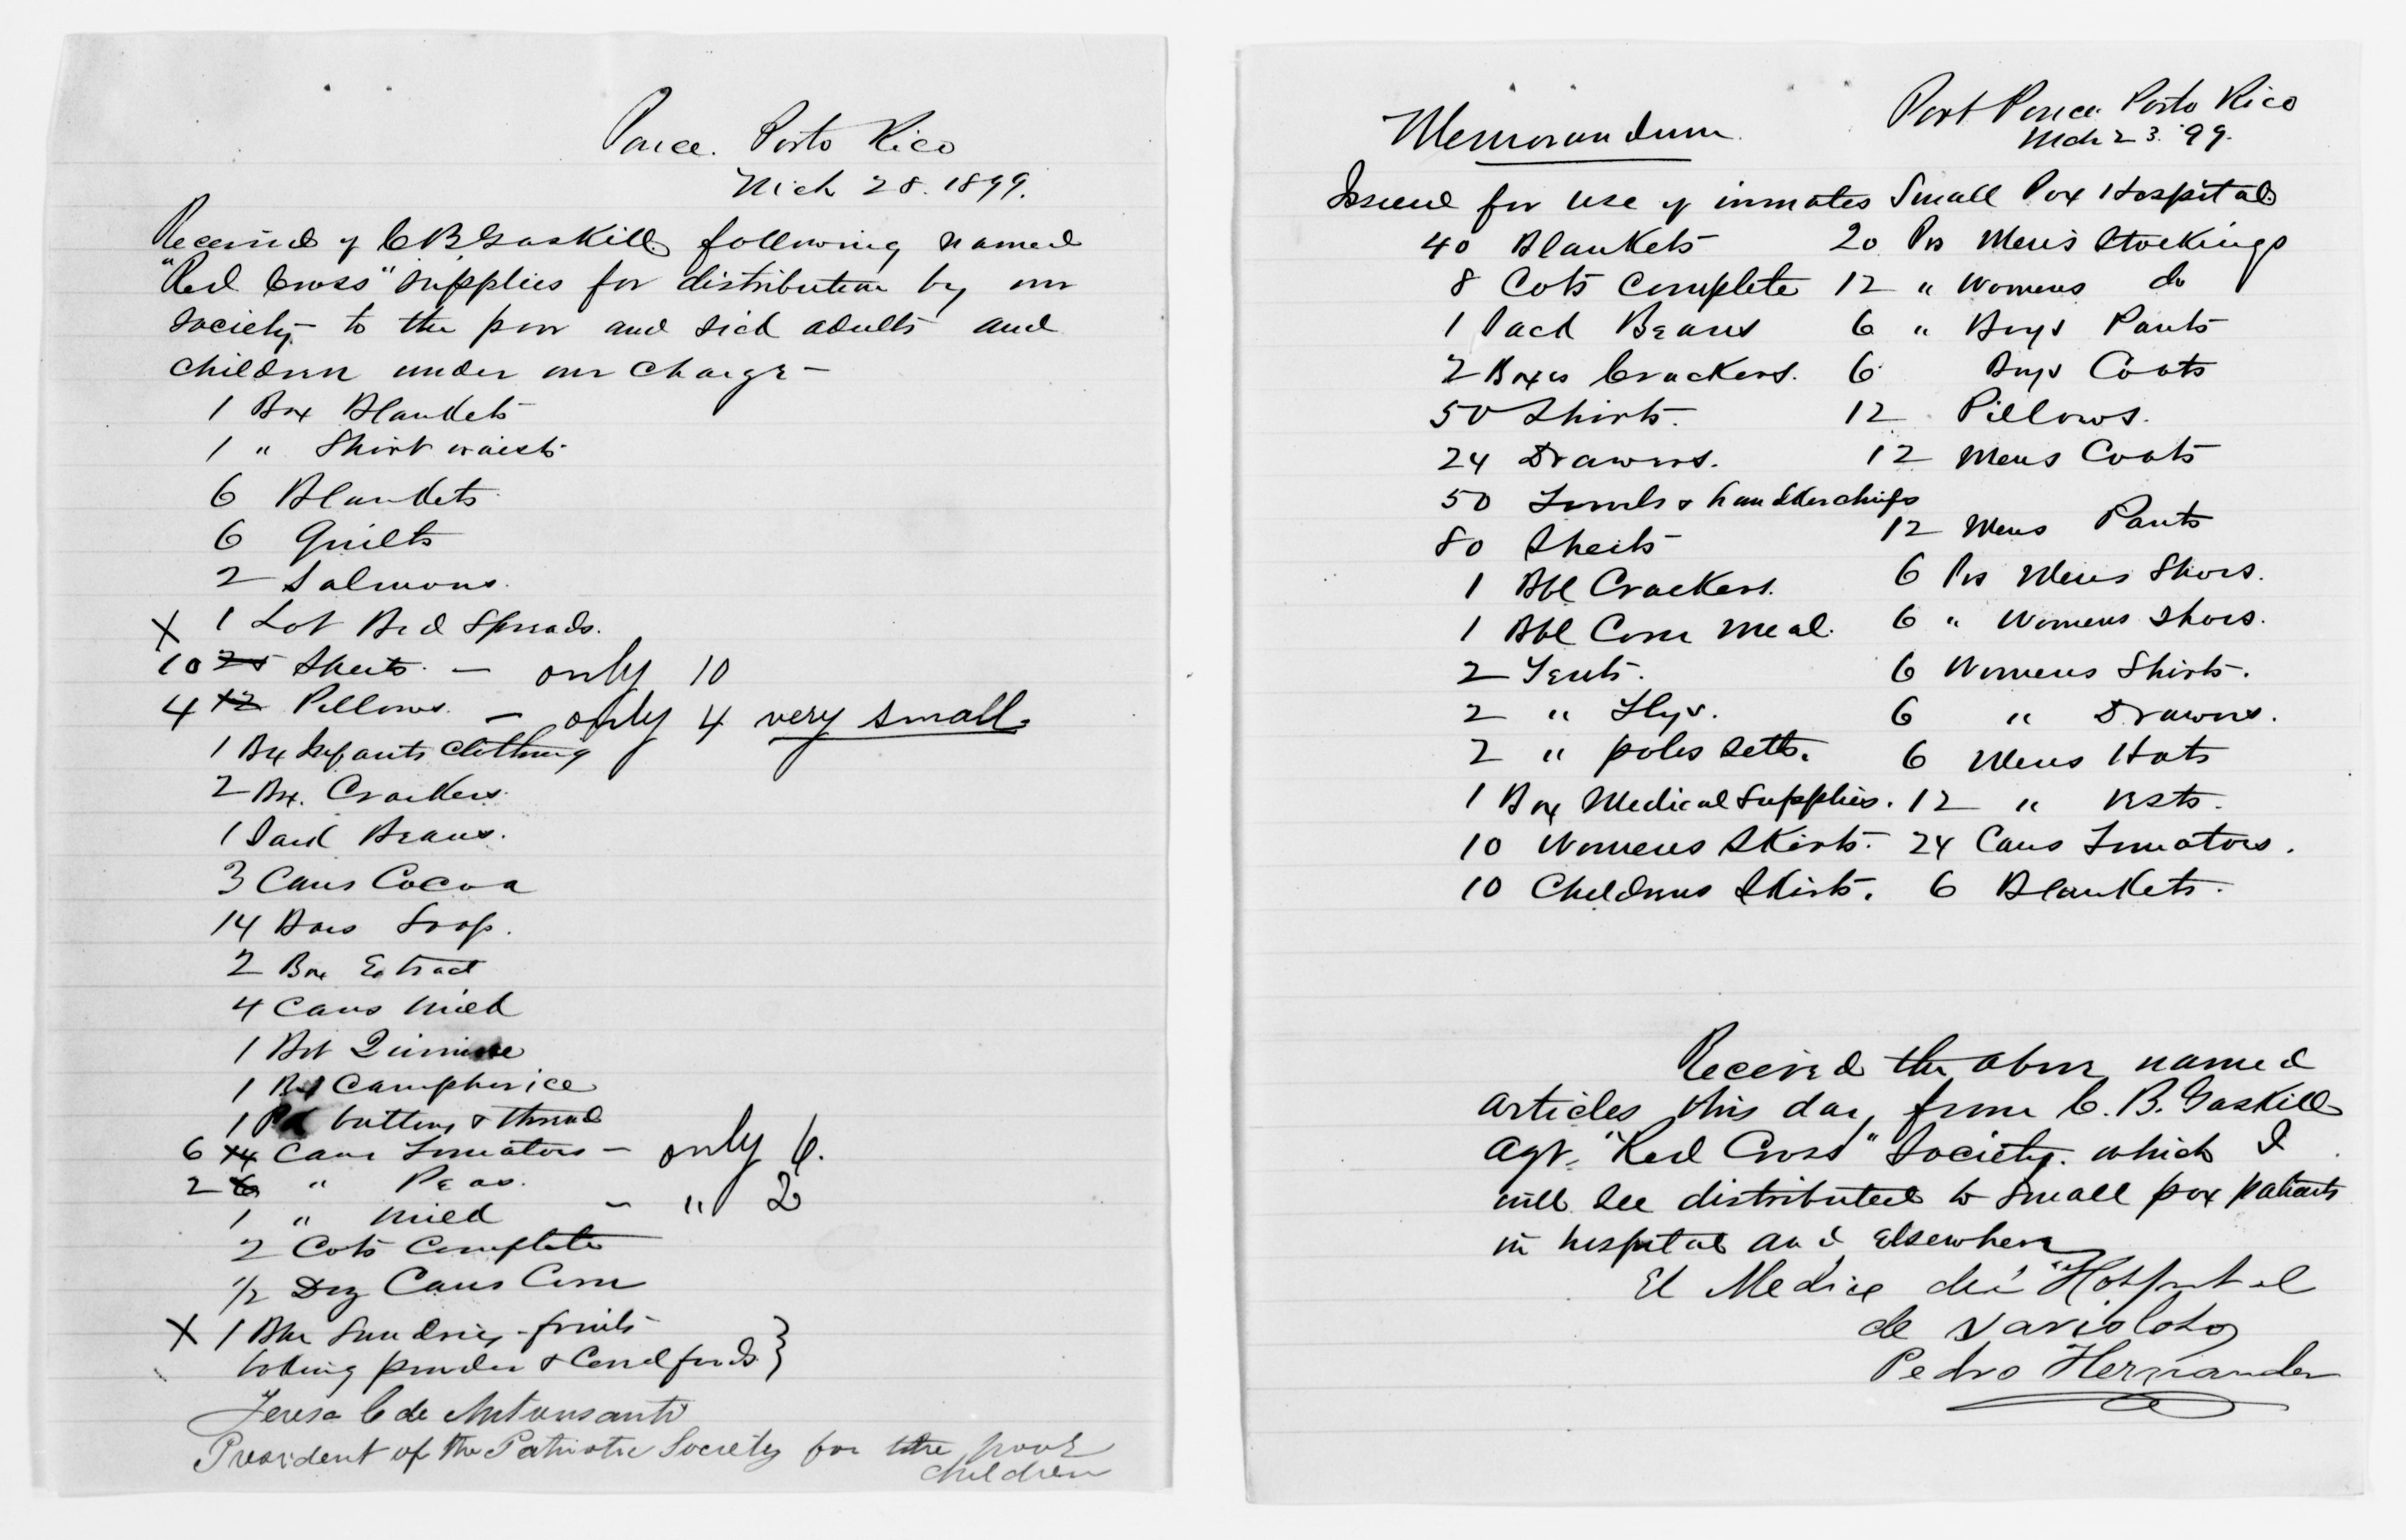 Ponce. Porto Rico
Mch 28. 1899.
Received of C B Gaskill following named
"Red Cross" supplies for distribution by our
society to the poor and sick adults and
children under our charge -
1 Box Blankets
1 " Shirt waists
6 Blankets
6 Quilts
2 Salmons.
X 1 Lot Bed Spreads.
10 25 Sheets. - only 10
4 12 Pillows. - only 4 very small
1 Bx Infants Clothing
2 Bx. Crackers.
1 Sack Beans.
3 Cans Cocoa
14 Bars Soap.
2 Box Extract
4 Cans Milk
1 Bot Quinine
1 Bx Camphorice
1 Pk buttons & thread
6 24 Cans Tomatoes - only 6.
2 6 " Peas.
1 " Milk - " 2
2 Cots Complete
1/2 Doz Cans Corn
X 1 Box Sundries - fruits
baking powder & Canned foods }
Teresa C de Antonsanti
President of the Patriotic Society for the poor
children
Memorandum.
Port Ponce. Porto Rico
Mch 23. '99.
Issued for use of inmates Small Pox Hospital
40 Blankets 20 Prs Men's Stockings
8 Cots complete 12 " Womens do
1 Sack Beans 6 " Boys Pants
2 Boxes Crackers. 6 Boys Coats
50 Shirts. 12 Pillows.
24 Drawers. 12 Mens Coats
50 Towels & handkerchiefs
12 Mens Pants
80 Sheets
1 Bbl Crackers. 6 Prs Mens Shoes.
1 Bbl Corn Meal. 6 " Womens Shoes.
2 Tents. 6 Womens Shirts.
2 " Flys. 6 " Drawers.
2 " poles setts. 6 Mens Hats
1 Box Medical Supplies. 12 " Vests.
10 Womens Skirts. 24 Cans Tomatoes.
10 Childrens Skirts. 6 Blankets.
Received the above named
articles this day from C. B. Gaskill
Agt. "Red Cross" Society. which I
will see distributed to small pox patients
in hospital and elsewhere
El Medico del "Hospital
de variolosos
Pedro Hernandez